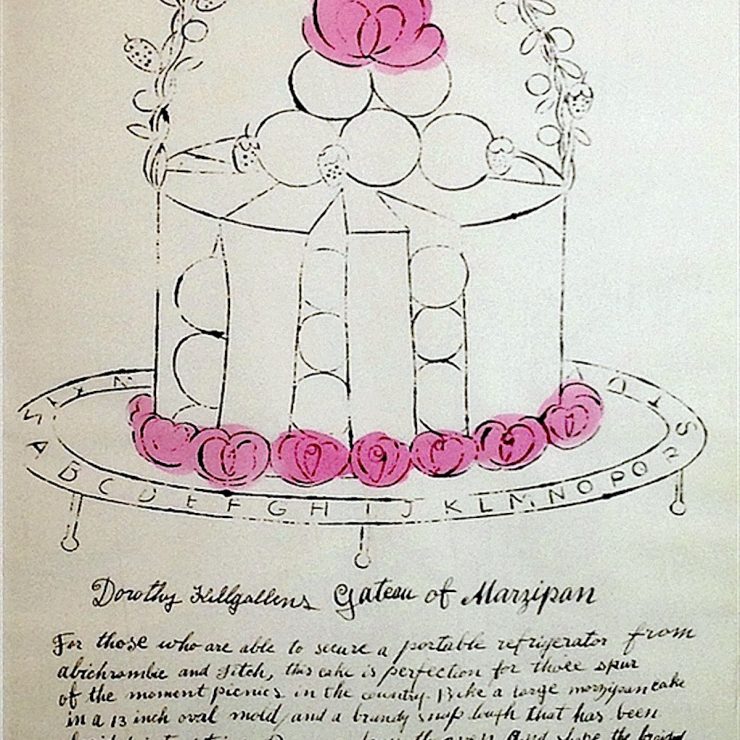 A B C D E F G H I J K L M N O P Q R S
Dorothy Killgallens Gateau of Marzipan
For those who are able to secure a portable refrigerator from
abichrombie and Fitch, this cake is perfection for those spur
of the moment picnics in the country. Bake a large marzipan cake
in a 13 inch oval mold, and a brandy snap dough that has been